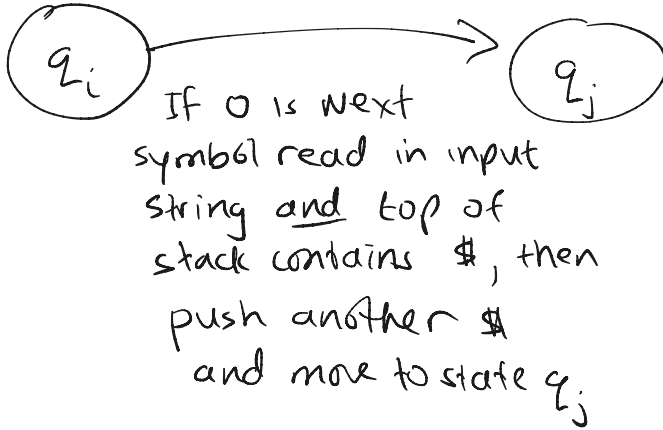 qi qj
If 0 is next
symbol read in input
string and top of
stack contains $, then
push another $
and move to state qj